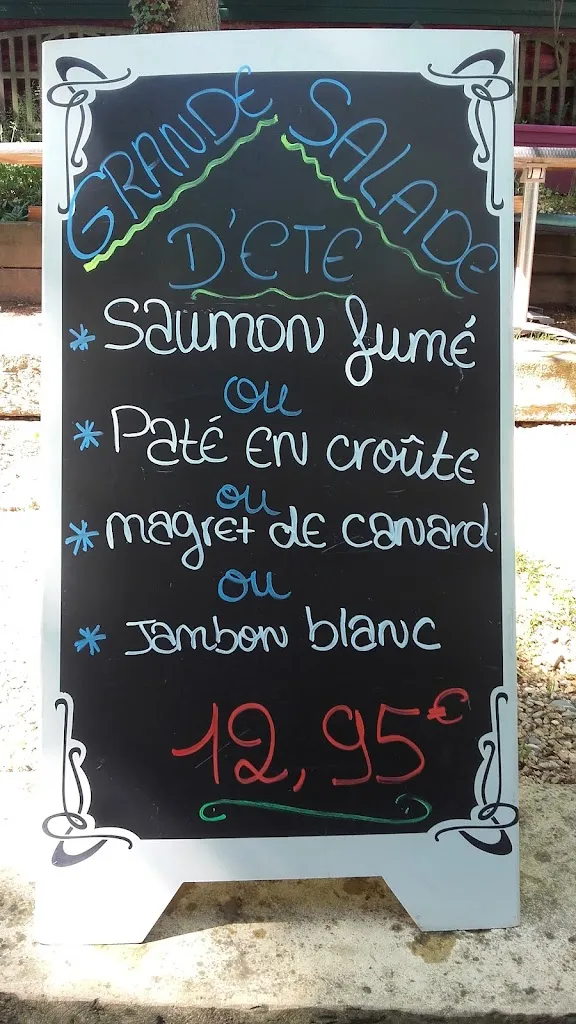 GRANDE SALADE
D'ETE
* Saumon fumé
ou
* Paté en croûte
ou
* magret de canard
ou
* Jambon blanc
12,95€